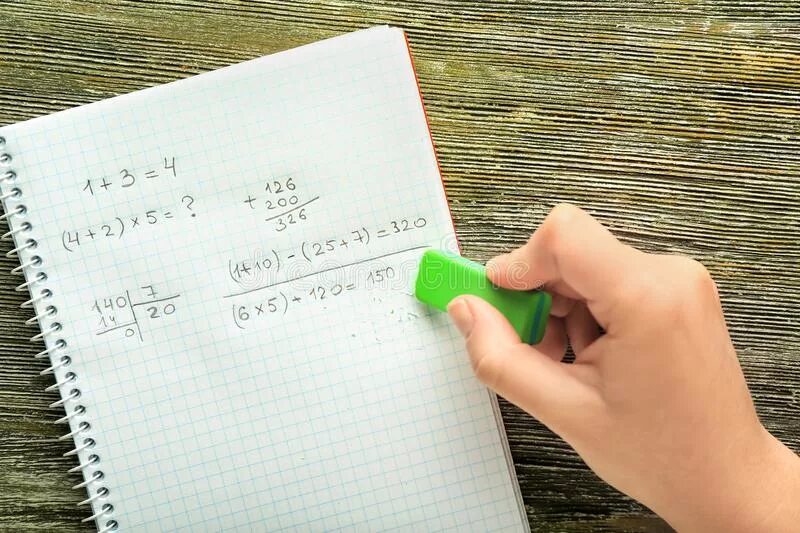 1 + 3 = 4
(4 + 2) × 5 = ?
126
+ 200
326
(1+10) - (25+7) = 320
(6×5) + 120 = 150
140 7
14 20
0